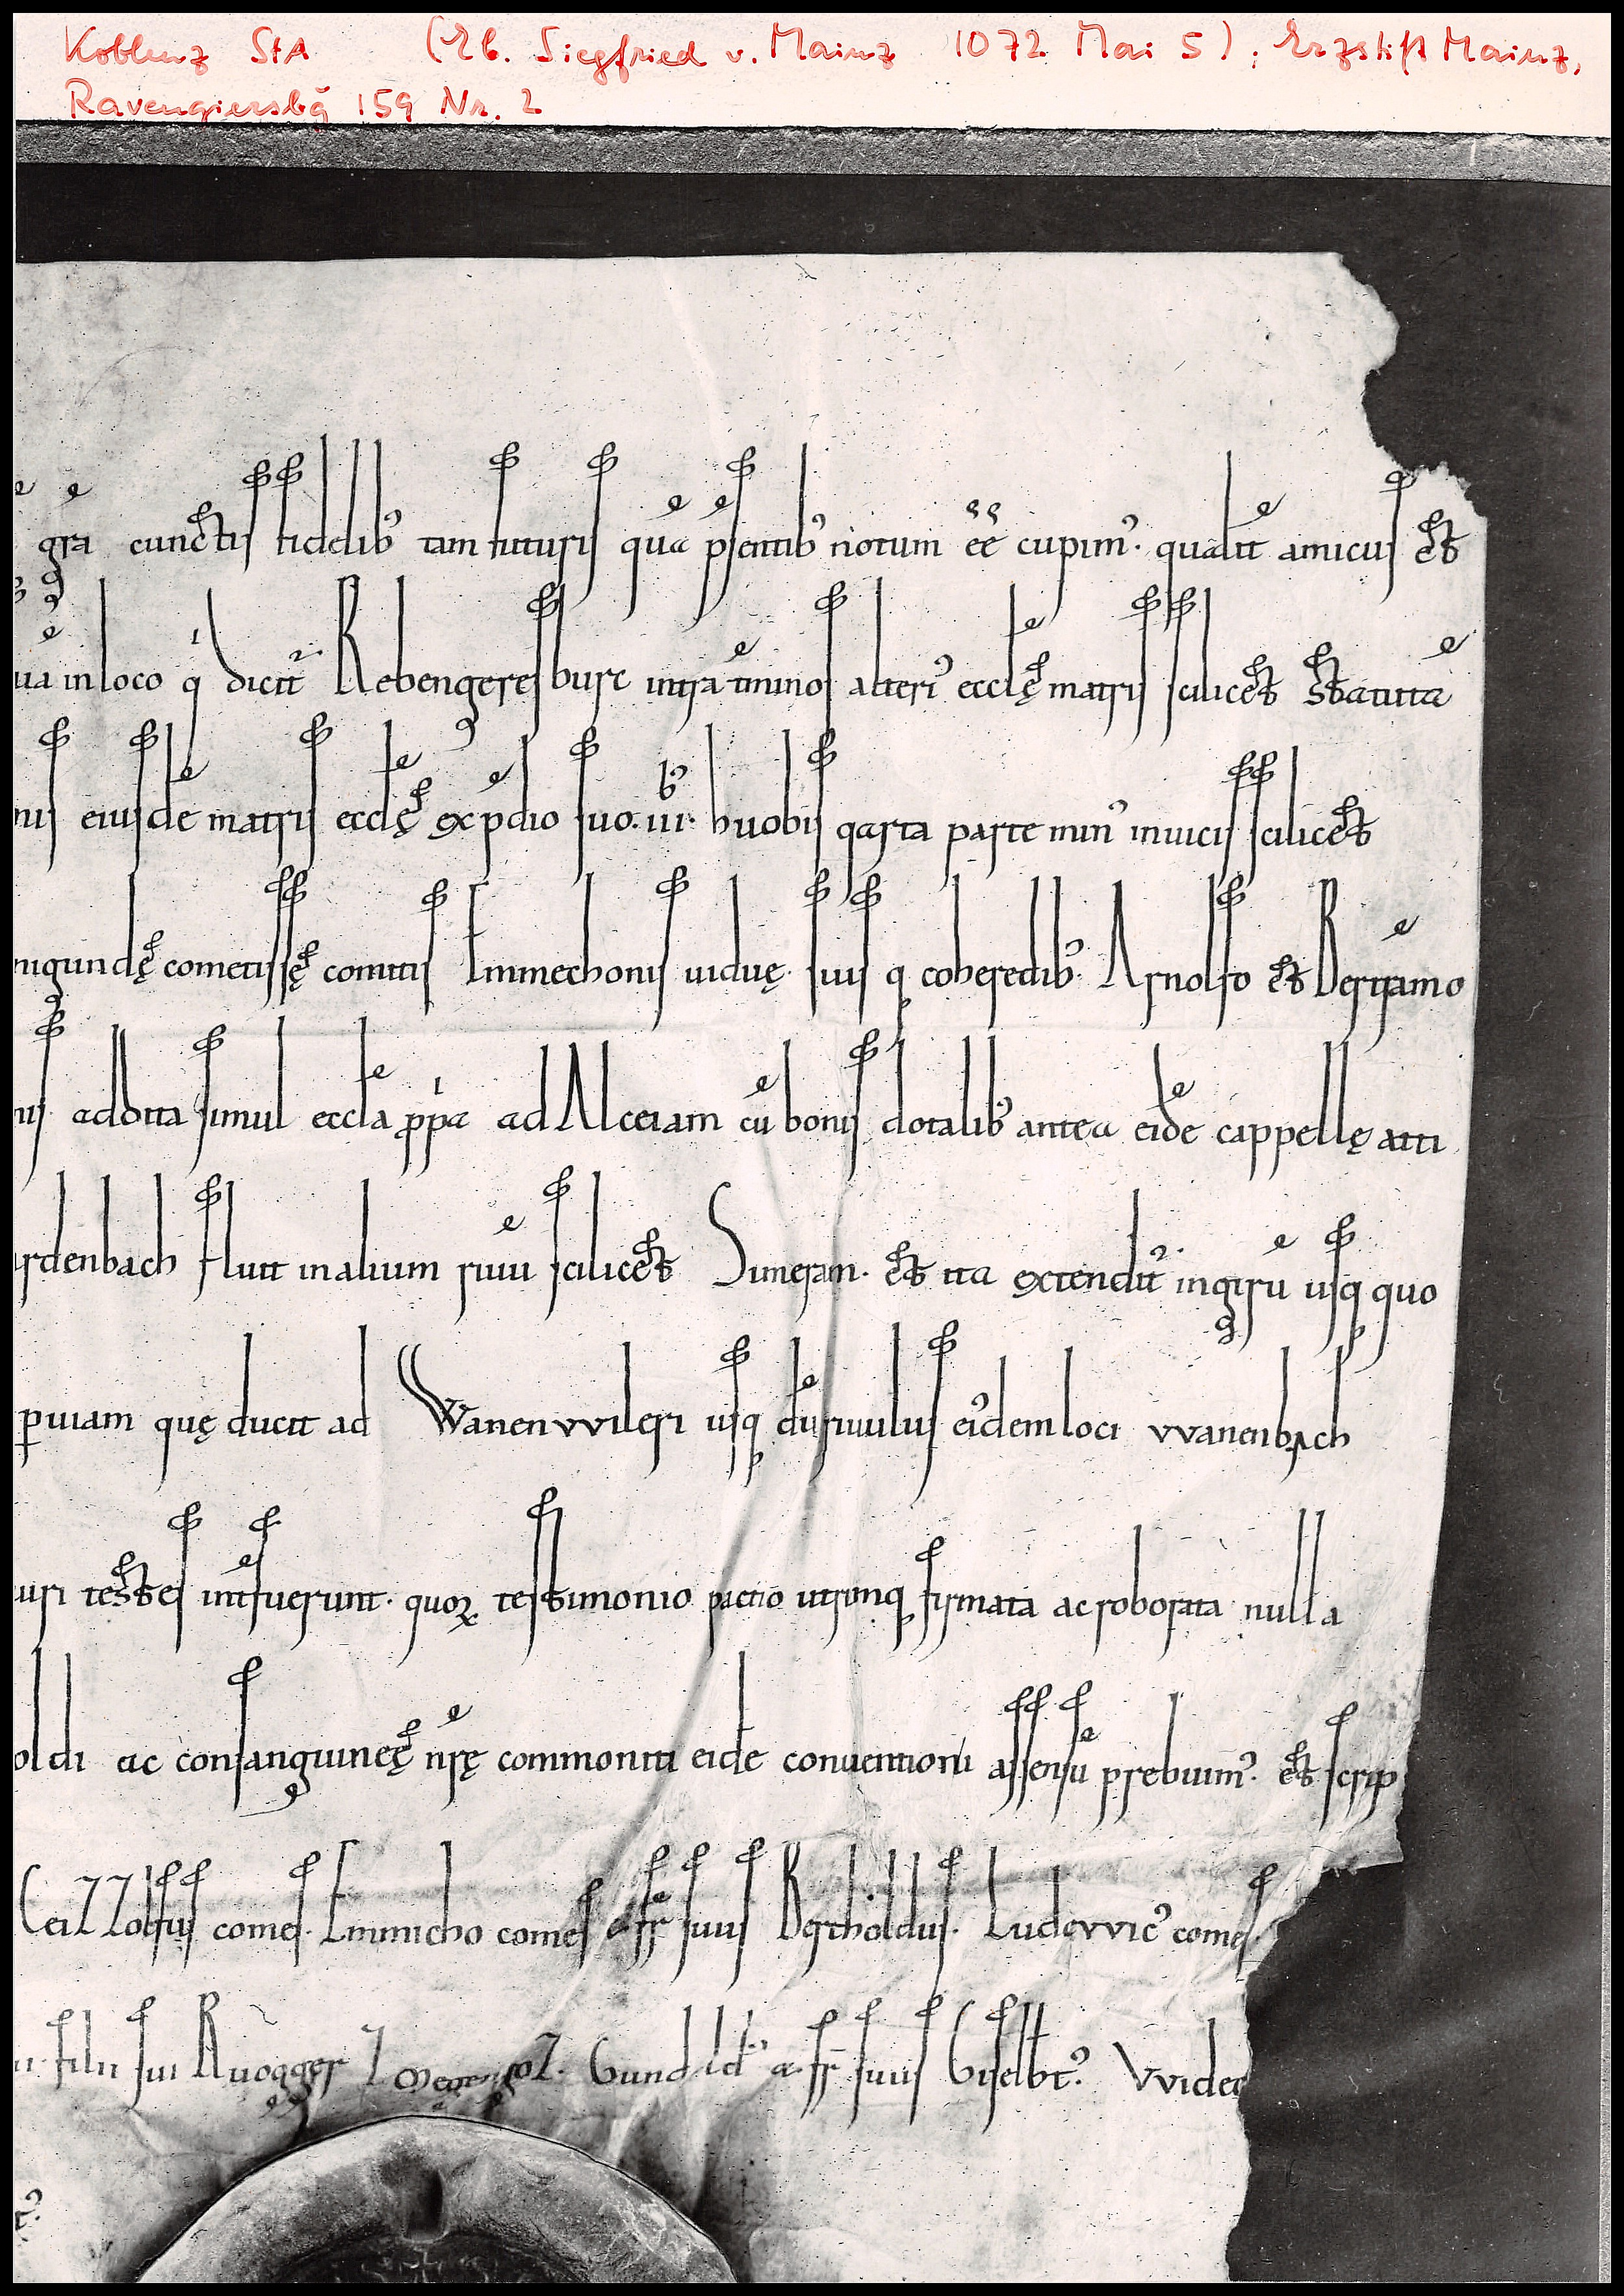 Koblenz StA (Eb. Siegfried v. Mainz 1072 Mai 5); Erzstift Mainz,
Ravengiersbg̃ 159 Nr. 2
gr̃a cunctis fidelib᾽ tam futuris quã p̃sentib᾽ notum ẽẽ cupim᾽. qualit̃ amicus est
in loco q̇ dicit᷑ Rebengeresburc intra t̃minos alteri᾽ eccl̃ę matris scilicet statuta
eiusdẽ matris eccl̃ę ex p̃dio suo. iii. huobis q̇arta parte min᾽ inuicis scilicet
cometissę comitis Immechonis uiduę. suisq; coheredib᾽. Arnolfo et Bertramo
addita simul eccl̃a ppͥa ad Alceiam cũ bonis dotalib᾽ antea eidẽ cappellę atti
fluit in alium riuũ scilicet Simeram. et ita extendit᷑ in girũ usq; quo
p̱ uiam quę ducit ad Wanenwileri usq; dũ riuulus ei᾽dem loci wanenbach
testes int̃fuerunt. quoꝝ testimonio pactio utrimq; firmata ac roborata nulla
ac consanguineę nr̃ę commoniti eidẽ conuentioni assensũ prebuim᾽. et scrip
Ceizzolfus comes. Emmicho comes & fr̃ suus Bertholdus. Ludewic᾽ comes.
filii sui Ruogger fr̃ suus Giselbt᾽.